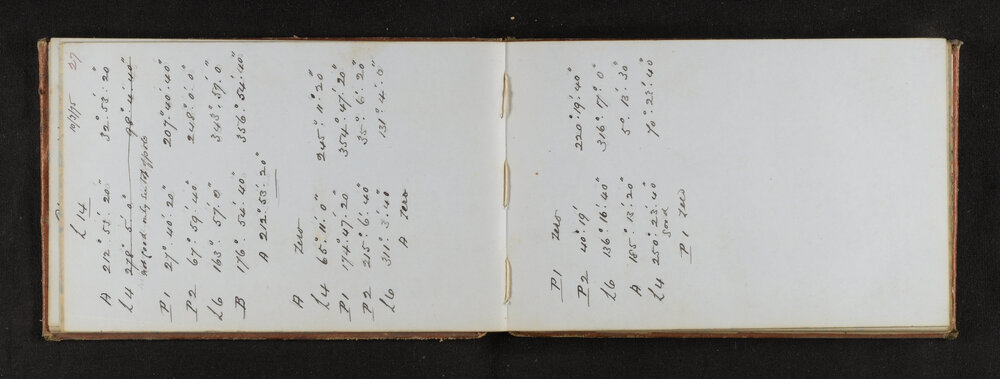 10/2/75 27
L 14
A 212°: 53': 20" 32°: 53': 20"
L 4 278°: 5': 0" 98°: 4': 40"
not good only
P 1 27°: 40': 20" 207°: 40': 40"
P 2 67°: 59': 40" 248°: 0': 0"
L 6 163°: 57': 0" 343°: 57': 0
B 176°: 54': 40" 356°: 54': 40"
A 212°: 53': 20"
A Zero
L 4 65°: 11': 0" 245°: 11': 20"
P 1 174°: 47': 20 354°: 47': 20"
P 2 215°: 6': 40" 35°: 6': 20"
L 6 311°: 3': 40" 131°: 4': 0"
A Zero
P 1 Zero
P 2 40°: 19' 220°: 19': 40"
L 6 136°: 16': 40" 316°: 17': 0"
A 185°: 13': 20" 5°: 13': 30
L 4 250°: 23': 40 70°: 23': 40
Good
P 1 Zero